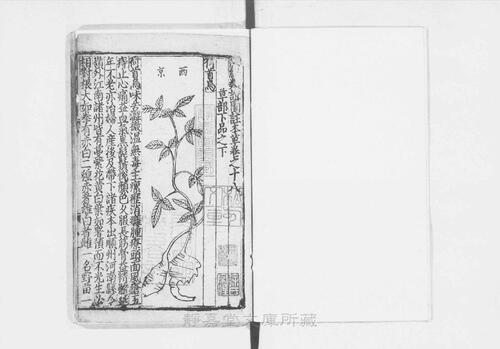 草部下品之下
何首烏
西京
何首烏味苦澁微温無毒主瘰癧消癰腫療頭面風瘡五
痔止心痛益血氣黑髭鬢悅顏色久服長筋骨益精髓延
年不老亦治婦人産後及帶下諸疾本出順州河南縣今
嶺外江南諸州皆有蔓紫花黃白葉如薯蕷而不光生必
相對根大如拳有赤白二種赤者雄白者雌一名野苗一
靜嘉堂文庫所藏